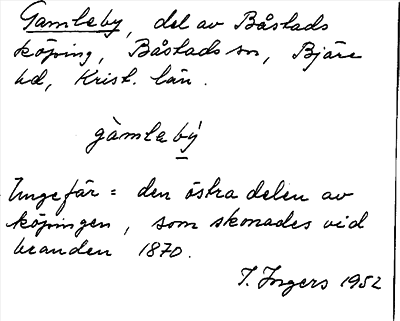 Gamleby, del av Båstads
köping, Båstads sn, Bjäre
hd, Krist. län.
gàmlebý
Ungefär = den östra delen av
köpingen, som skonades vid
branden 1870.
I. Ingers 1952